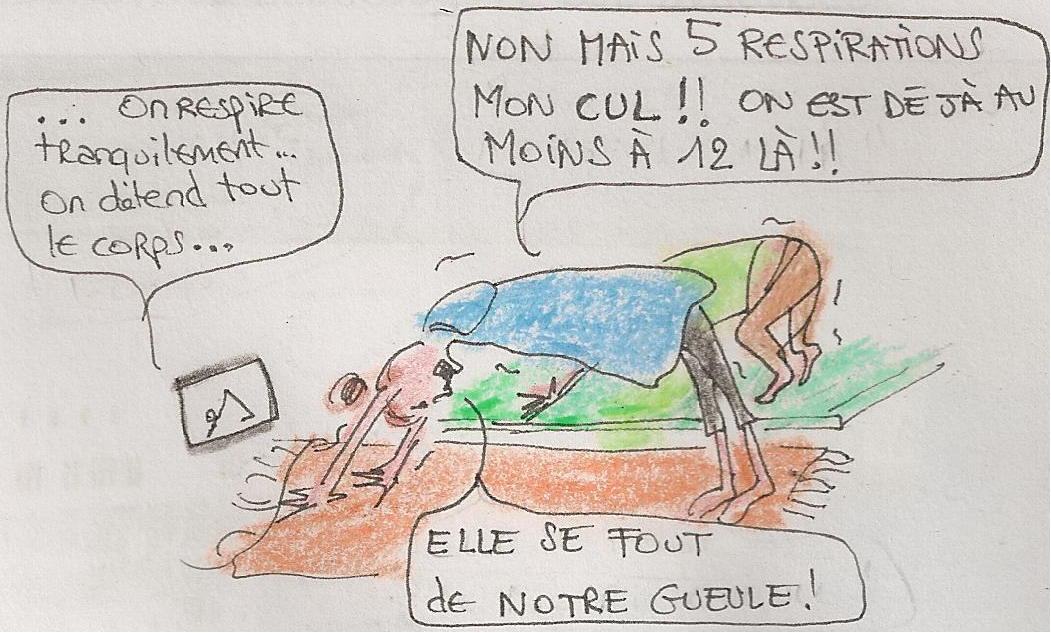 ... ON RESPIRE
tRANQUILEMENT...
ON détend tout
lE CORPS...
NON MAIS 5 RESPIRATIONS
MON CUL !! ON EST DEJÀ AU
MOINS À 12 LÀ !!
ELLE SE FOUT
dE NOTRE GUEULE !